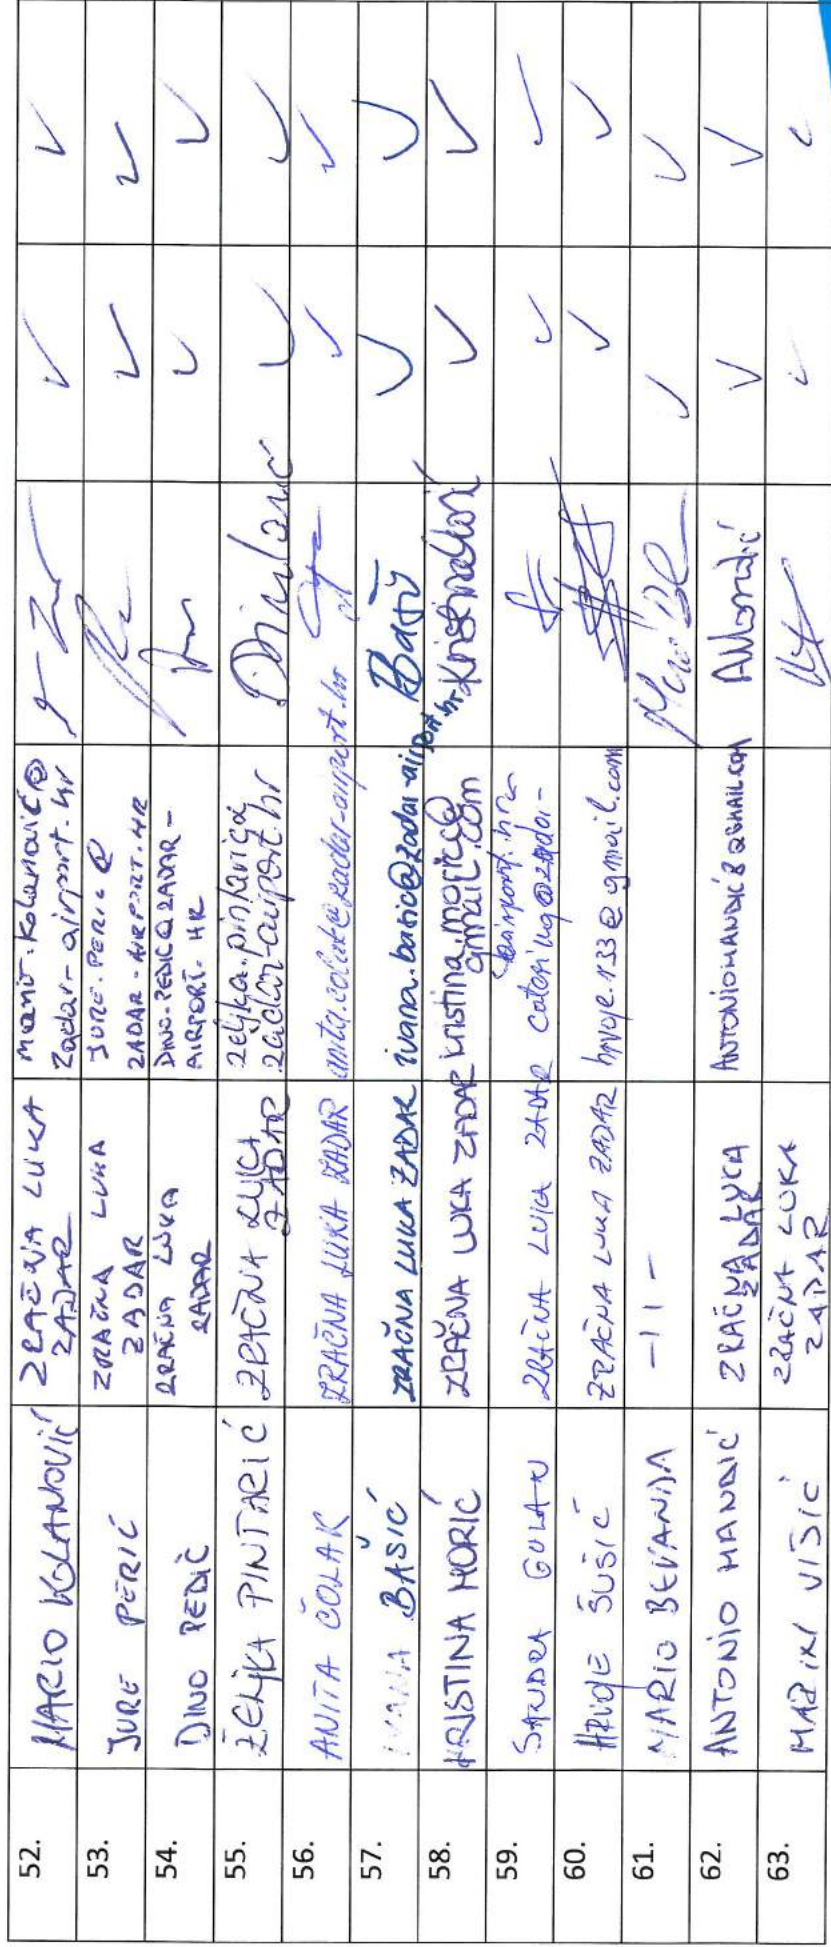 52. MARIO KOLANOVIĆ ZRAČNA LUKA ZADAR mario.kolanović@zadar-airport.hr
53. JURE PERIĆ ZRAČNA LUKA ZADAR JURE.PERIC@ZADAR-AIRPORT.HR
54. DINO PEDIĆ ZRAČNA LUKA ZADAR DINO.PEDIC@ZADAR-AIRPORT.HR
55. ŽELJKA PINTARIĆ ZRAČNA LUKA ZADAR zeljka.pintaric@zadar-airport.hr Pintarić
56. ANITA ČOLAK ZRAČNA LUKA ZADAR anita.colak@zadar-airport.hr
57. IVANA BAŠIĆ ZRAČNA LUKA ZADAR ivana.basic@zadar-airport.hr Bašić
58. KRISTINA MORIĆ ZRAČNA LUKA ZADAR kristina.moric@gmail.com Kristina Morić
59. SANDRA GULAN ZRAČNA LUKA ZADAR catering@zadar-airport.hr
60. HRVOJE ŠUŠIĆ ZRAČNA LUKA ZADAR hrvoje.133@gmail.com
61. MARIO BEVANDA -11-
62. ANTONIO MANDIĆ ZRAČNA LUKA ZADAR ANTONIOMANDIC8@GMAIL.COM AMandić
63. MARIN VIŠIĆ ZRAČNA LUKA ZADAR